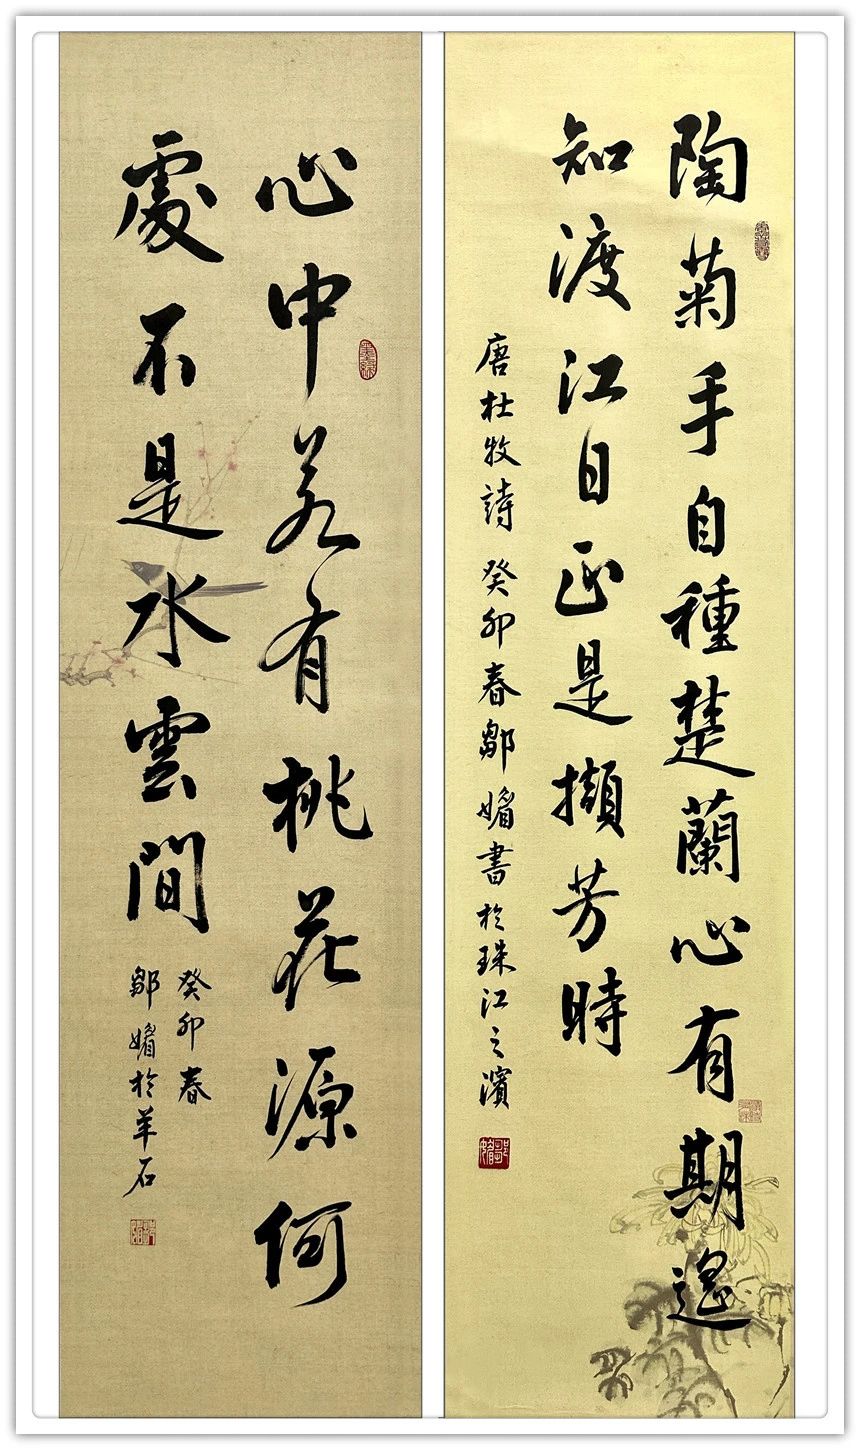 陶菊手自種楚蘭心有期遙
知渡江日正是擷芳時
唐杜牧詩 癸卯春鄒媚書於珠江之濱
心中若有桃花源何
處不是水雲間
癸卯春
鄒媚於羊石